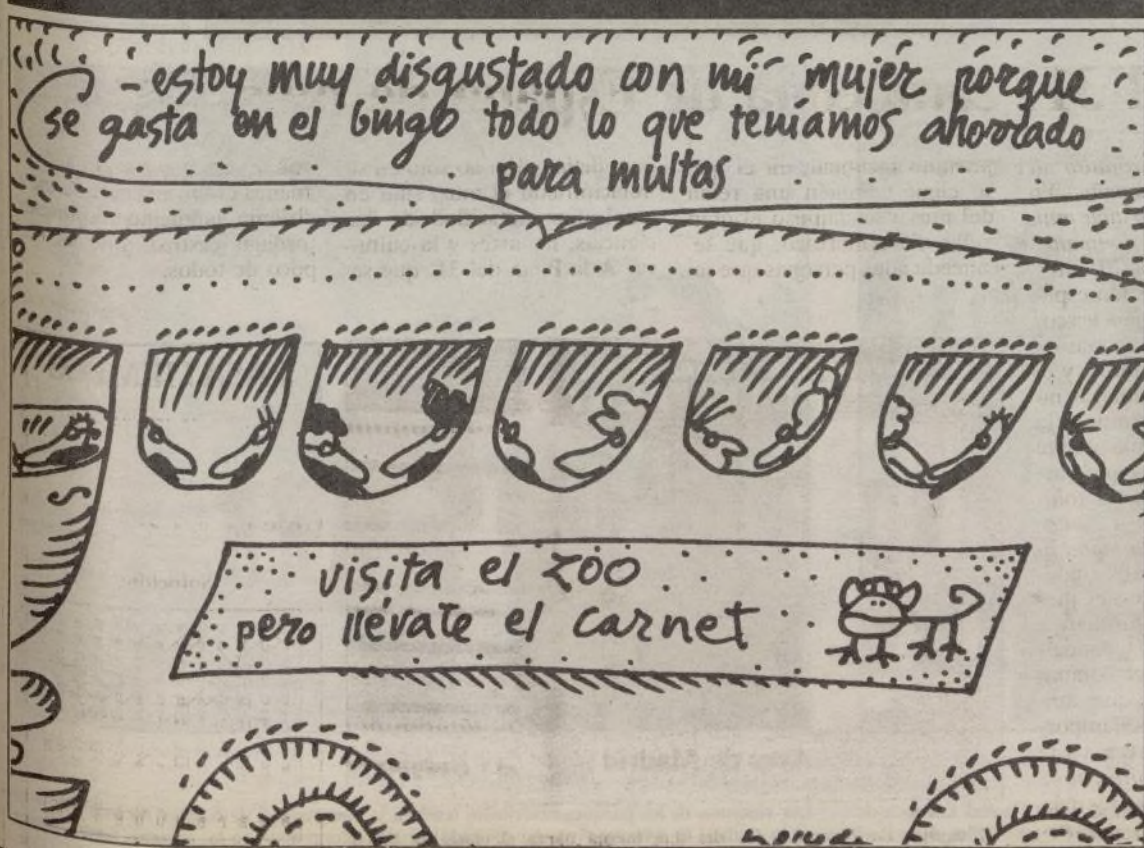 - estoy muy disgustado con mi mujer porque
se gasta en el bingo todo lo que teníamos ahorrado
para multas
visita el zoo
pero llévate el carnet